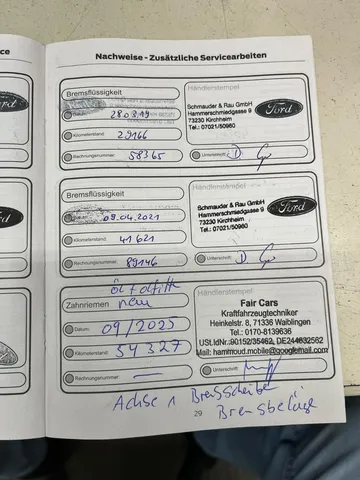 ce
Nachweise - Zusätzliche Servicearbeiten
Bremsflüssigkeit
Händlerstempel
Datum: 28.03.19
Schmauder & Rau GmbH
Hammerschmiedgasse 9
73230 Kirchheim
Tel.: 07021/50960
Ford
Kilometerstand: 29166
Rechnungsnummer: 58365
Unterschrift:
Bremsflüssigkeit
Händlerstempel
Datum: 09.04.2021
Schmauder & Rau GmbH
Hammerschmiedgasse 9
73230 Kirchheim
Tel.: 07021/50960
Ford
Kilometerstand: 41621
Rechnungsnummer: 89146
Unterschrift:
Zahnriemen neu
Händlerstempel
Datum: 09/2025
Fair Cars
Kraftfahrzeugtechniker
Heinkelstr. 8, 71336 Waiblingen
Tel.: 0170-8139636
Kilometerstand: 54327
USt.IdNr.:90152/35462, DE244632562
Mail: hammoud.mobile@googlemail.com
Rechnungsnummer: —
Unterschrift:
Achse 1 Bremsscheibe
29
Bremsbeläge